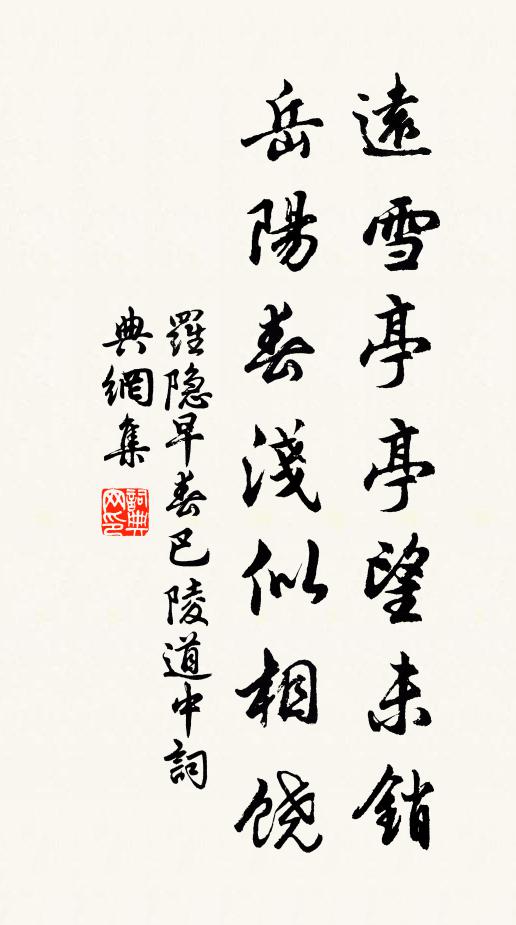 遠雪亭亭望未銷
岳陽春淺似相饶
羅隐早春巴陵道中詞
典網集
詞典网印